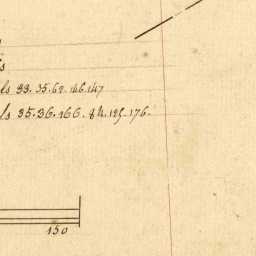 ls 33. 35. 62. 146. 147
ls 35. 36. 166. 84. 125. 176.
150